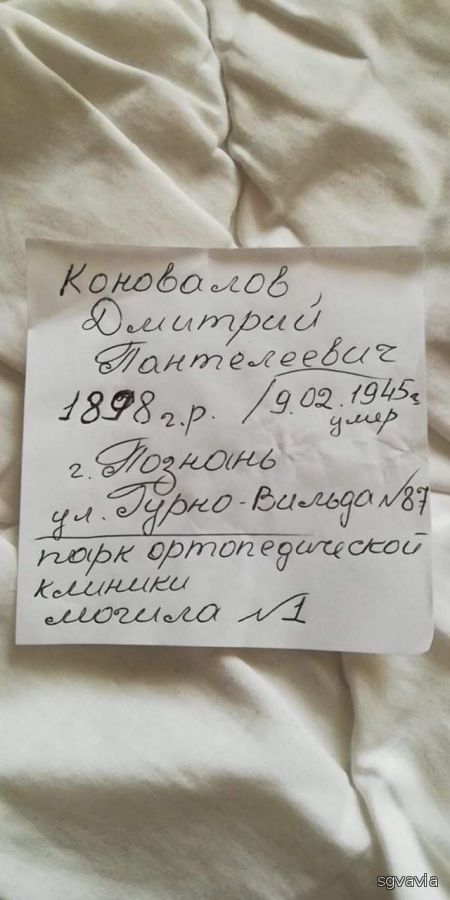 Коновалов
Дмитрий
Пантелеевич
1898 г.р. /9.02.1945г
умер
г. Познань
ул. Гурно-Вильда №87
парк ортопедической
клиники
могила №1
sgvavia